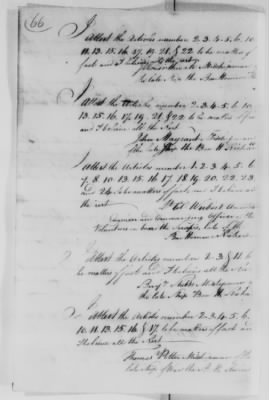 66
I Attest the Articles number 2. 3. 4. 5. 6. 10
11. 13. 15. 16. 17. 19. 21. & 22 to be matters of
fact and I believe
Midshipman
the late Ship the Bon Homme
I Attest the Articles number 2. 3. 4. 5. 6. 10
13. 15. 16. 17. 19. 21. & 22 to be matters of fact
and I believe all the Rest
John Mayrant
the late the Bon H Richard
I Attest the Articles number 1. 2. 3. 4. 5. 6
7. 8. 10. 13. 15. 16. 17. 18. 19. 20. 22. 23
and 24 to be matters of fact, and I believe
the rest.
Lt Col Wuibert
Engineer and Commanding Officer of the
Volunteers on board the
Bon Homme Richard
I Attest the Articles number 2. 3 & 11 to
be matters of fact and I believe all the
Benjn Stubbs Midshipman
the late Ship Bon H. Richa
I Attest the Articles number 2. 3. 4. 5. 6.
10. 11. 13. 15. 16 & 17. to be matters of fact and
I believe all the Rest
Thomas Potter Midshipman of the
late Ship of War the B. H. Richard